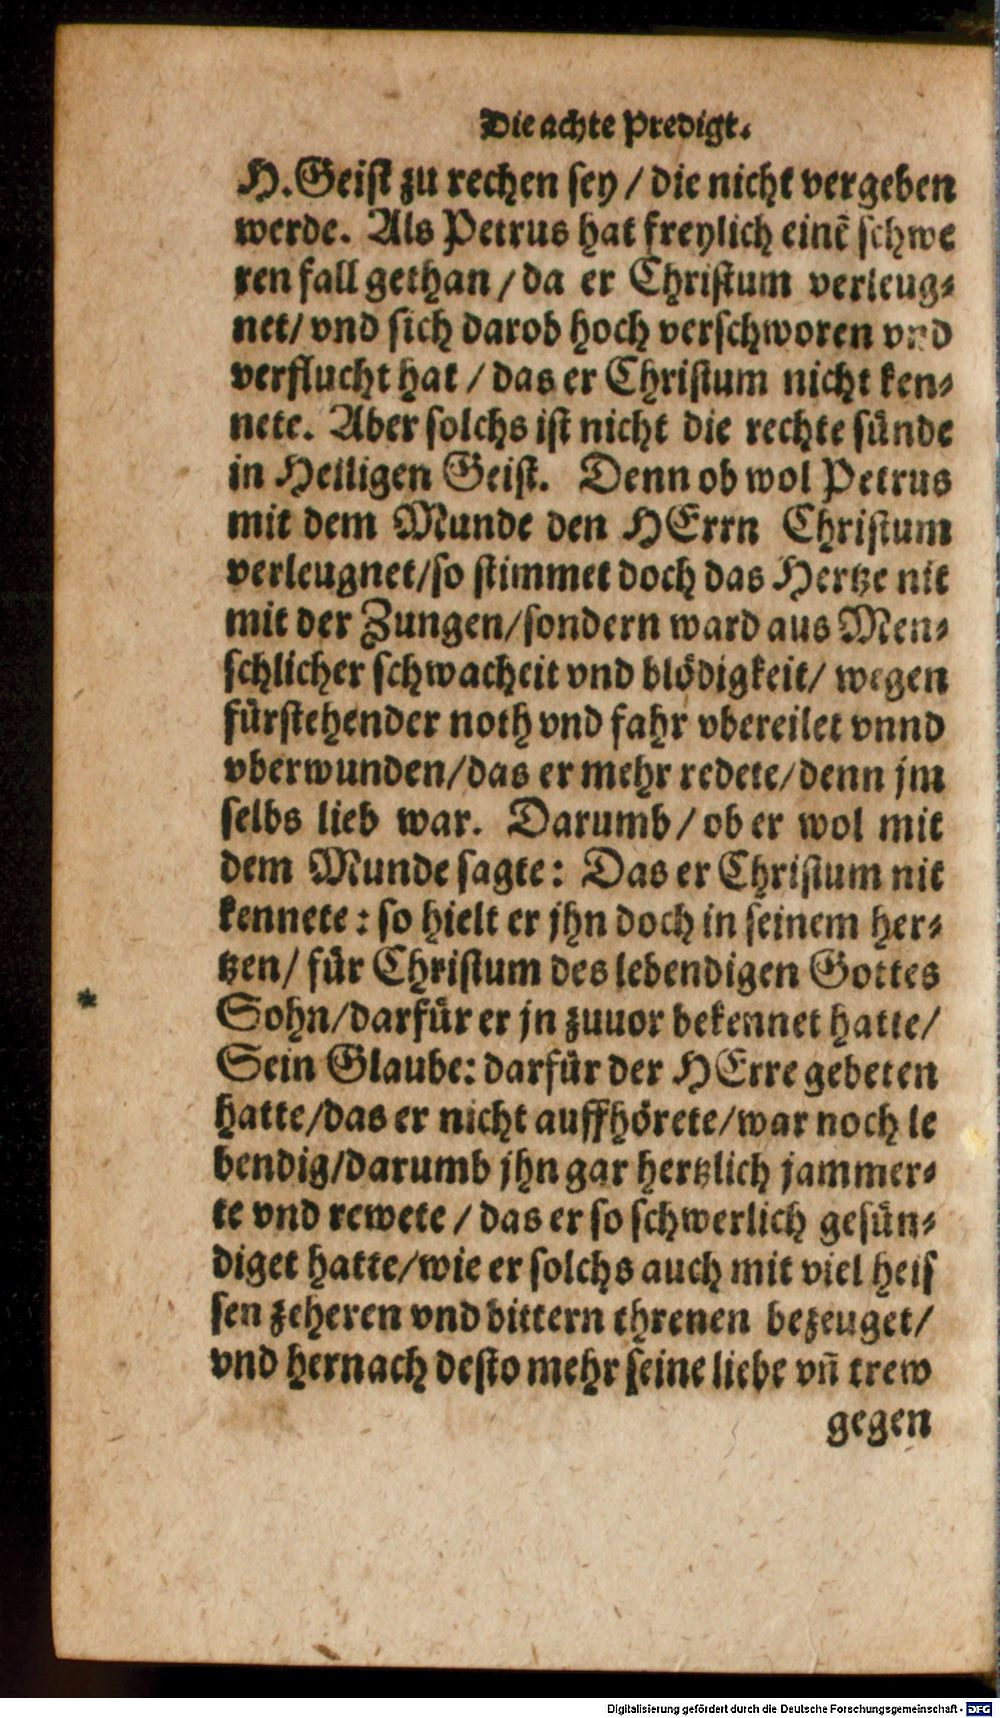 Die achte Predigt.
H. Geist zu rechen sey / die nicht vergeben
werde. Als Petrus hat freylich einē schwe
ren fall gethan / da er Christum verleug⸗
net / vnd sich darob hoch verschworen vnd
verflucht hat / das er Christum nicht ken⸗
nete. Aber solchs ist nicht die rechte sünde
in Heiligen Geist. Denn ob wol Petrus
mit dem Munde den HErrn Christum
verleugnet / so stimmet doch das Hertze nit
mit der Zungen / sondern ward aus Men⸗
schlicher schwacheit vnd blödigkeit / wegen
fürstehender noth vnd fahr vbereilet vnnd
vberwunden / das er mehr redete / denn jm
selbs lieb war. Darumb / ob er wol mit
dem Munde sagte: Das er Christum nit
kennete: so hielt er jhn doch in seinem her⸗
tzen / für Christum des lebendigen Gottes
Sohn / darfür er jn zuuor bekennet hatte /
Sein Glaube: darfür der HErre gebeten
hatte / das er nicht auffhörete / war noch le
bendig / darumb jhn gar hertzlich jammer⸗
te vnd rewete / das er so schwerlich gesün⸗
diget hatte / wie er solchs auch mit viel heis
sen zeheren vnd bittern threnen bezeuget /
vnd hernach desto mehr seine liebe vñ trew
gegen
*
Digitalisierung gefördert durch die Deutsche Forschungsgemeinschaft - DFG